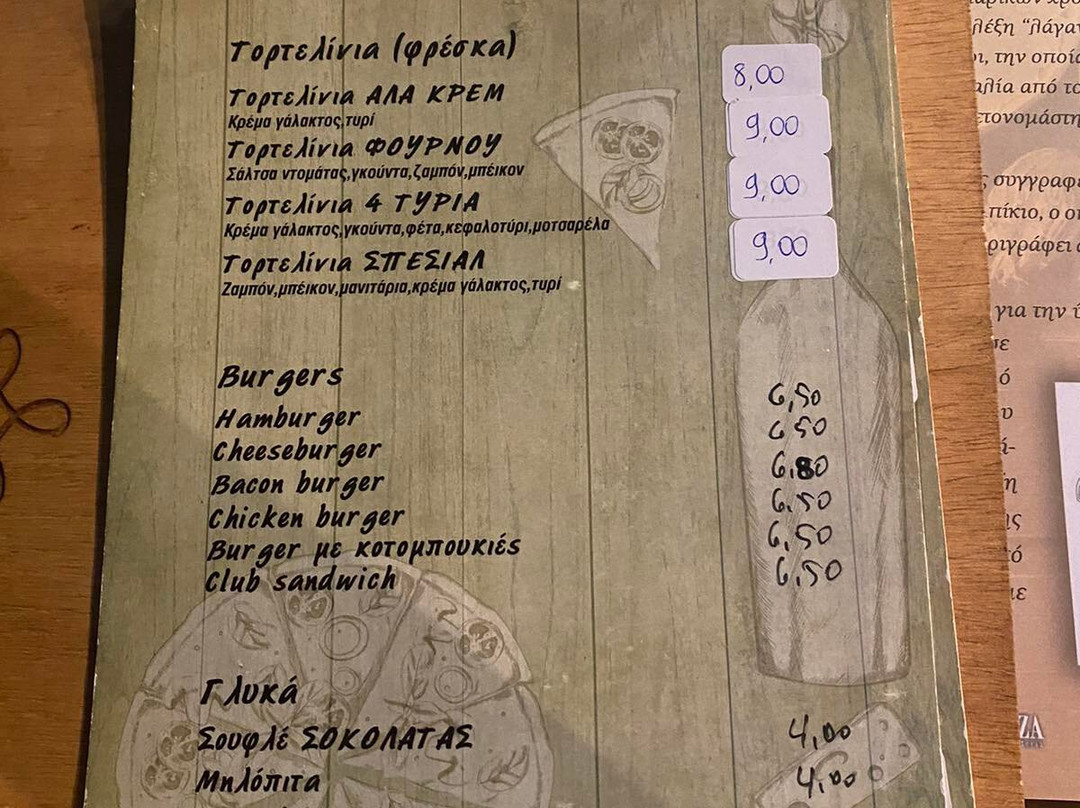 Τορτελίνια (φρέσκα)
Τορτελίνια ΑΛΑ ΚΡΕΜ 8,00
Κρέμα γάλακτος,τυρί
Τορτελίνια ΦΟΥΡΝΟΥ 9,00
Σάλτσα ντομάτας,γκούντα,ζαμπόν,μπέικον
Τορτελίνια 4 ΤΥΡΙΑ 9,00
Κρέμα γάλακτος,γκούντα,φέτα,κεφαλοτύρι,μοτσαρέλα
Τορτελίνια ΣΠΕΣΙΑΛ 9,00
Ζαμπόν,μπέικον,μανιτάρια,κρέμα γάλακτος,τυρί
Burgers
Hamburger 6,50
Cheeseburger 6,50
Bacon burger 6,80
Chicken burger 6,50
Burger με κοτομπουκιές 6,50
Club sandwich 6,50
Γλυκά
Σουφλέ ΣΟΚΟΛΑΤΑΣ 4,00
Μηλόπιτα 4,00
λέξη "λάγαν
ι, την οποία
αλία από το
ετονομάστη
ς συγγραφέ
πίκιο, ο
ριγράφει
για την